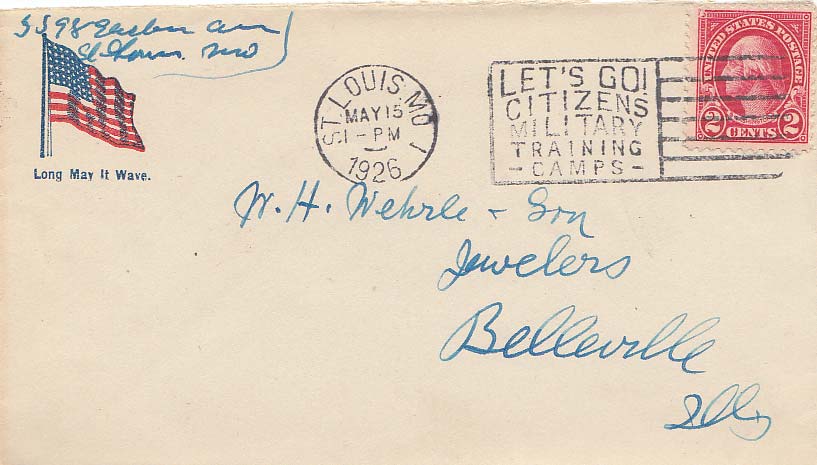 5598 Easton Ave
St Louis. Mo
Long May It Wave.
ST. LOUIS. MO 1
MAY 15
1 - PM
1926
LET'S GO!
CITIZENS
MILITARY
TRAINING
- CAMPS -
UNITED STATES POSTAGE
2 CENTS 2
W. H. Wehrle & Son
Jewelers
Belleville
Ills